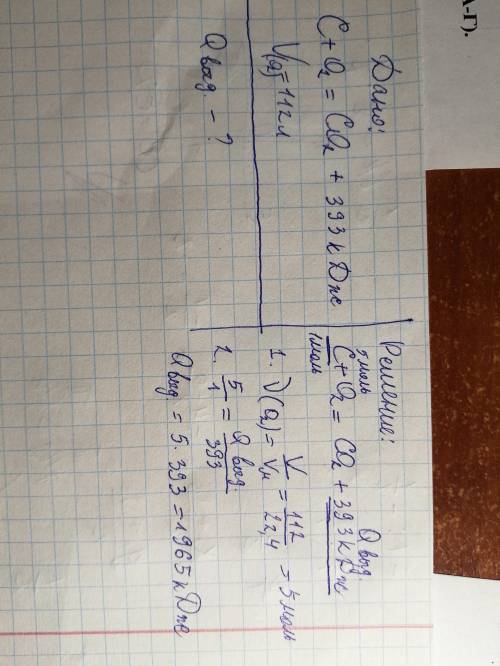 А-Г).
Дано:
C + O₂ = CO₂ + 393 кДж
V(O₂) = 112 л
Q выд. - ?
Решение:
5 моль Q выд.
C + O₂ = CO₂ + 393 кДж
1 моль
1. ν(O₂) = V/Vм = 112/22,4 = 5 моль
2. 5/1 = Q выд./393
Q выд. = 5 · 393 = 1965 кДж